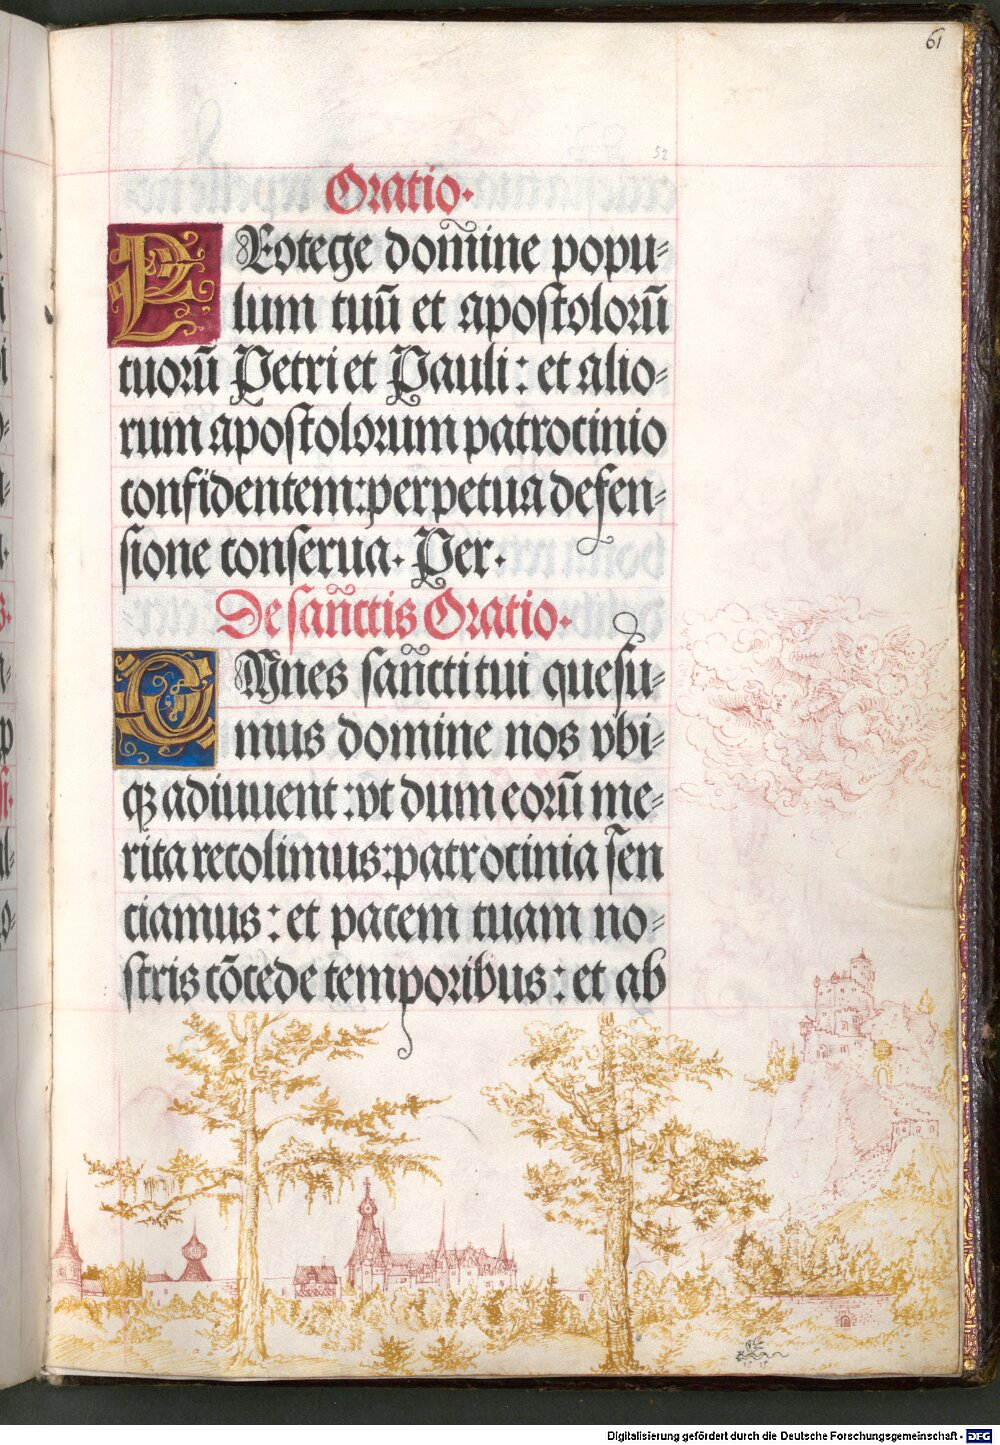 61
52
Oratio.
PRotege dom̃ine popu⸗
lum tuũ et apostolorũ
tuorũ Petri et Pauli: et alio⸗
rum apostolorum patrocinio
confidentem: perpetua defen⸗
sione conserua. Per.
De sañctis Oratio.
OMnes sañcti tui quesu⸗
mus domine nos vbi⸗
qʒ adiuuent: vt dum eorũ me⸗
rita recolimus: patrocinia sen
ciamus: et pacem tuam no⸗
stris cõcede temporibus: et ab
1515
Digitalisierung gefördert durch die Deutsche Forschungsgemeinschaft - DFG